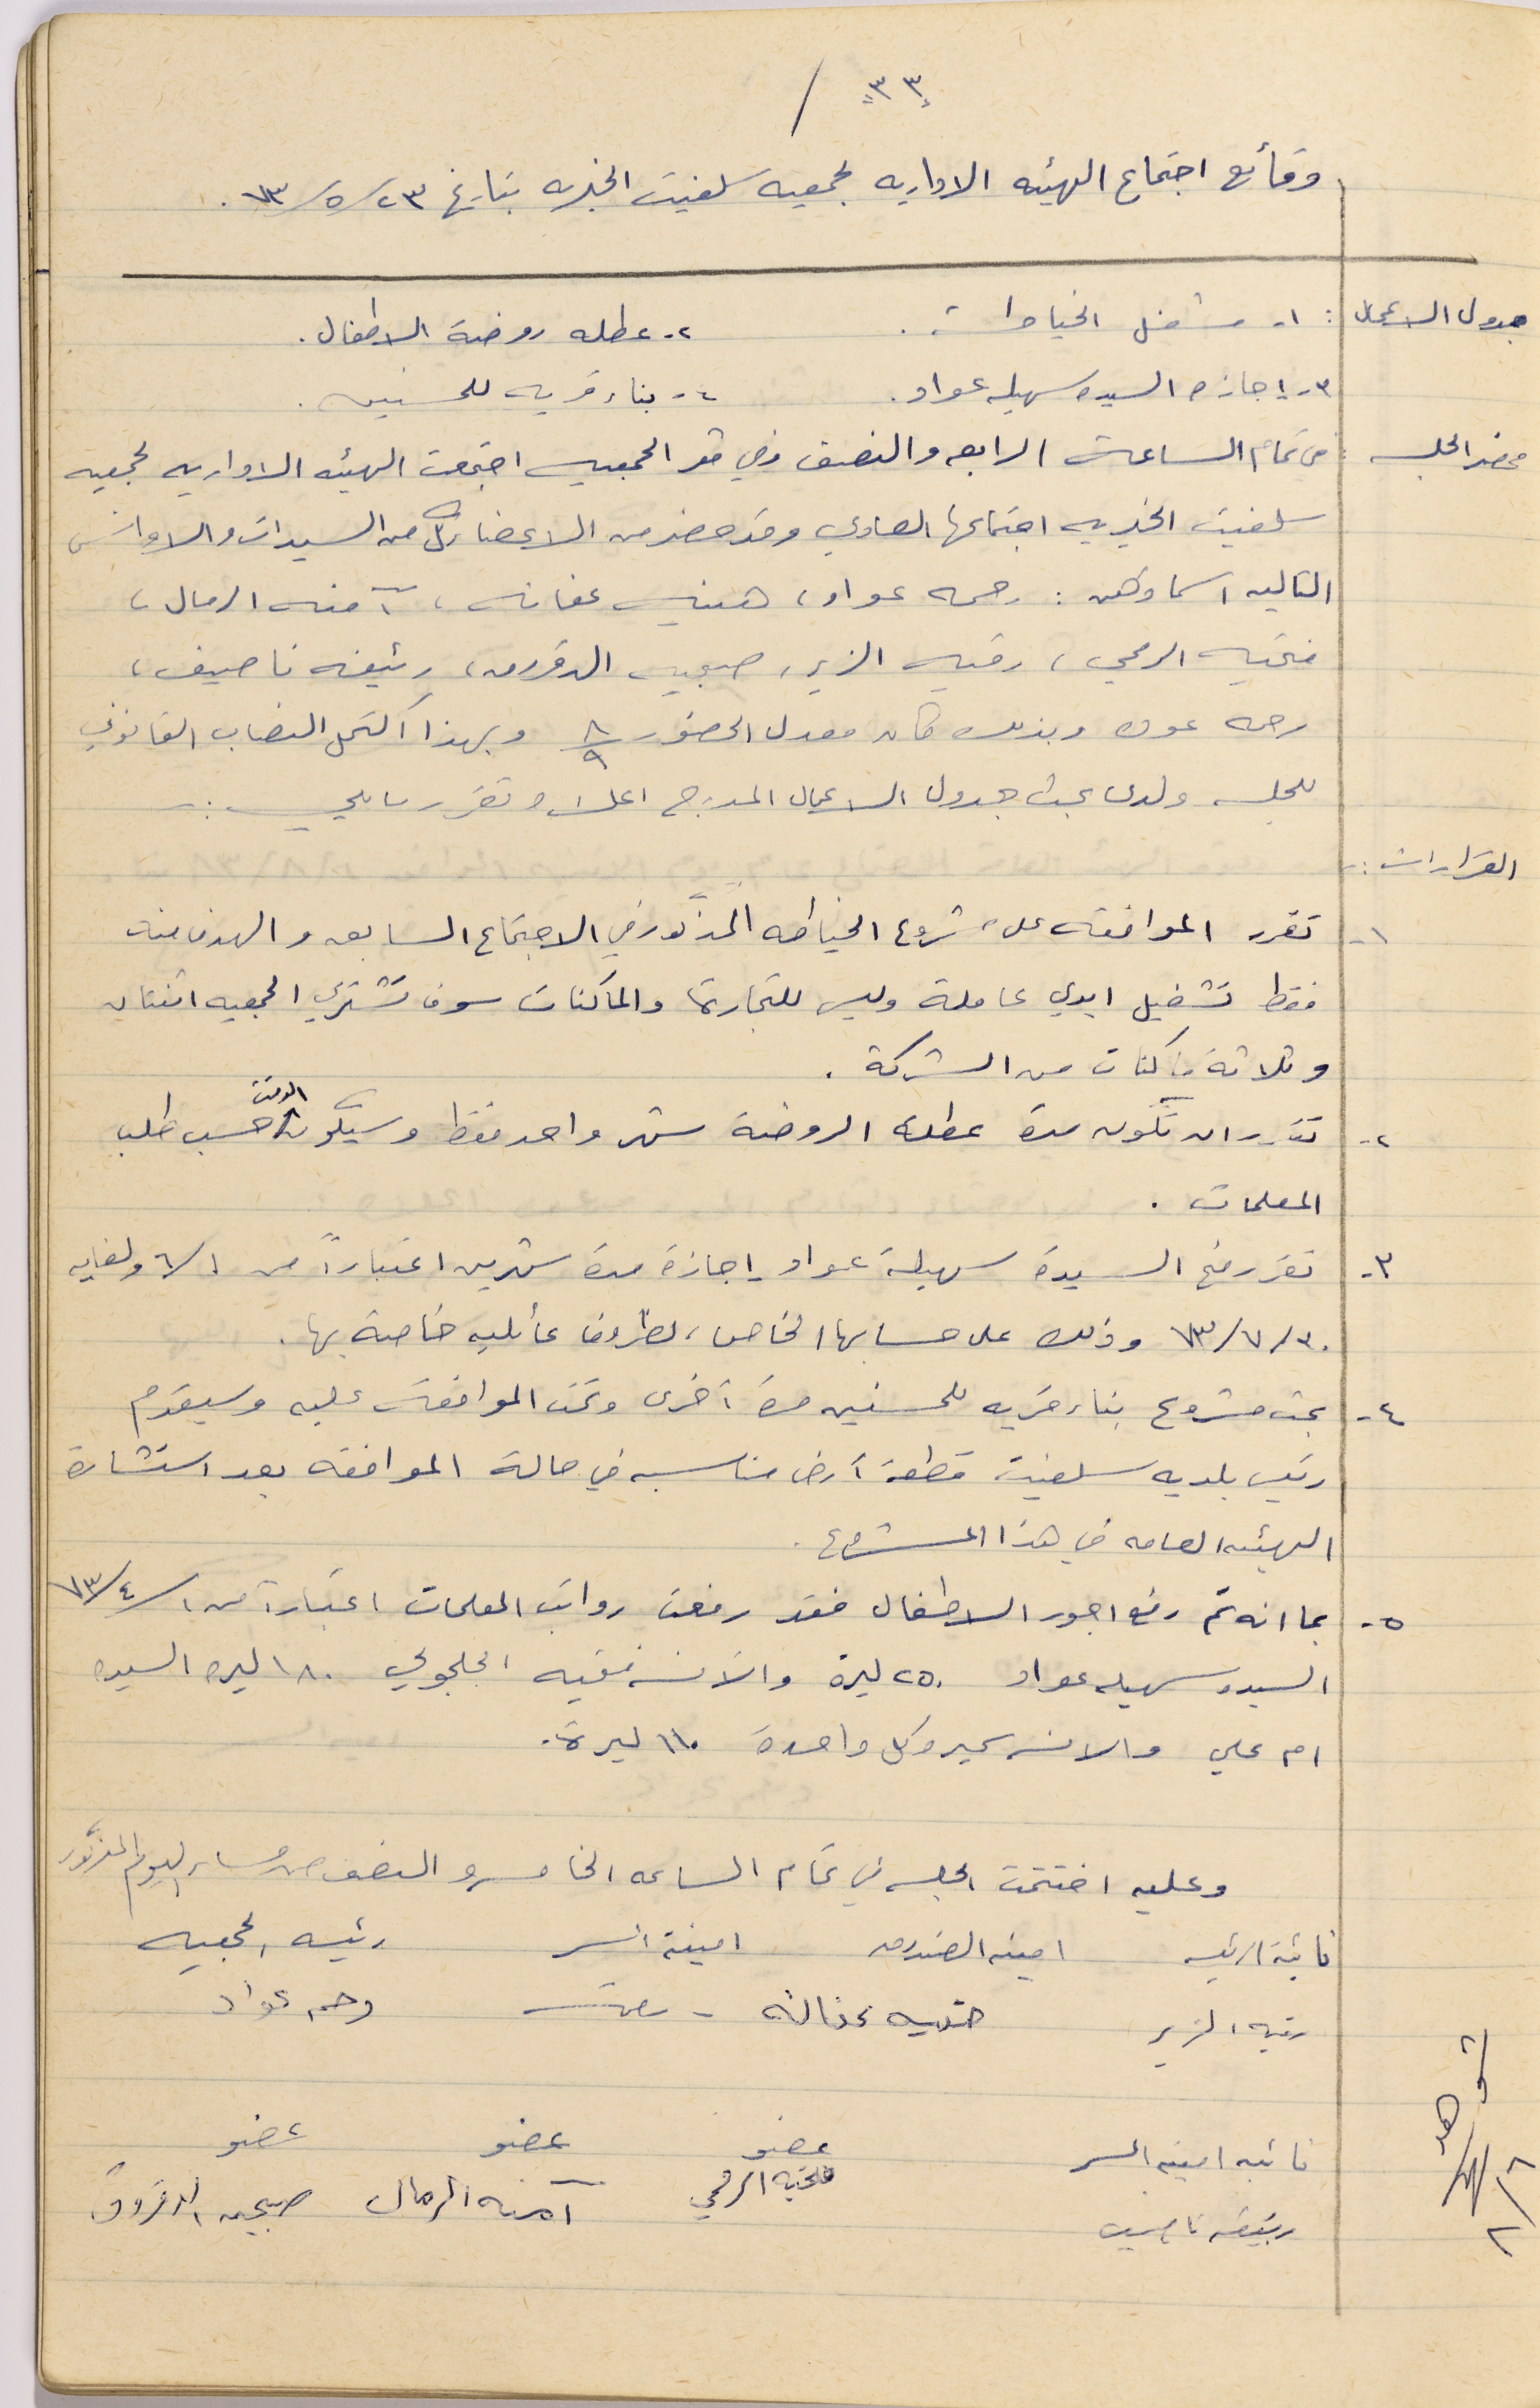 ٣٣ /
وقائع اجتماع الهيئه الاداريه لجمعيه سلفيت الخيريه بتاريخ ٢٣/٥/٧٣.
جدول الاعمال : ١- مشغل الخياطه . ٢- عطله روضة الاطفال.
٣- اجازه السيده سهيله عواد. ٤- بناء قريه للمسنين.
محضر الجلسه : في تمام الساعة الرابعه والنصف وفي مقر الجمعيه اجتمعت الهيئه الاداريه لجمعيه
سلفيت الخيريه اجتماعها العادي وقد حضر من الاعضاء كل من السيدات والاوانس
التاليه اسماوهن : رحمه عواد، هنيه عفانه، آمنه الرمال،
فتحيه الرمحي، رقيه الزير، صبحيه الدقروق، رئيفه ناصيف،
رحمه عوده وبذلك كان معدل الحضور ٨/٩ وبهذا اكتمل النصاب القانوني
للجلسه ولدى بحث جدول الاعمال المدرج اعلاه تقرر ما يلي :-
القرارات :-
١- تقرر الموافقه على مشروع الخياطه المذكور في الاجتماع السابق والهدف منه
فقط تشغيل ايدي عاملة وليس للتجارة والماكنات سوف تشتري الجمعيه اثنتان
وثلاثة ماكنات من الشركة .
٢- تقرر ان تكون مدة عطلة الروضة شهر واحد فقط وسيكون الوقت حسب طلب
المعلمات .
٣- تقرر منح السيدة سهيلة عواد اجازة مدة شهرين اعتباراً من ١/٦ ولغايه
٣٠/٧/٧٣ وذلك على حسابها الخاص، لظروف عائليه خاصة بها.
٤- بحث مشروع بناء قريه للمسنين مرة أخرى وتمت الموافقه عليه وسيقدم
رئيس بلديه سلفيت قطعة أرض مناسبه في حالة الموافقه بعد استشارة
الهيئه العامه في هذا المشروع.
٥- بما انه تم رفع اجور الاطفال فقد رفعت رواتب المعلمات اعتباراً من ١/٤/٧٣
السيده سهيله عواد ٢٥٠ ليرة والآنسه فقيه الجلجولي ١٨٠ ليره السيده
ام علي والانسه سميره كل واحدة ١١٠ ليرة.
وعليه اختتمت الجلسه في تمام الساعه الخامسه والنصف من مساء اليوم المذكور
نائبة الرئيسه امينه الصندوق امينة السر رئيسه الجمعيه
رقيه الزير هنيه عفانه رحمه عواد
نائبه امينه السر عضو عضو عضو
رئيفه ناصيف فتحيه الرمحي آمنه الرمال صبحيه الدقروق